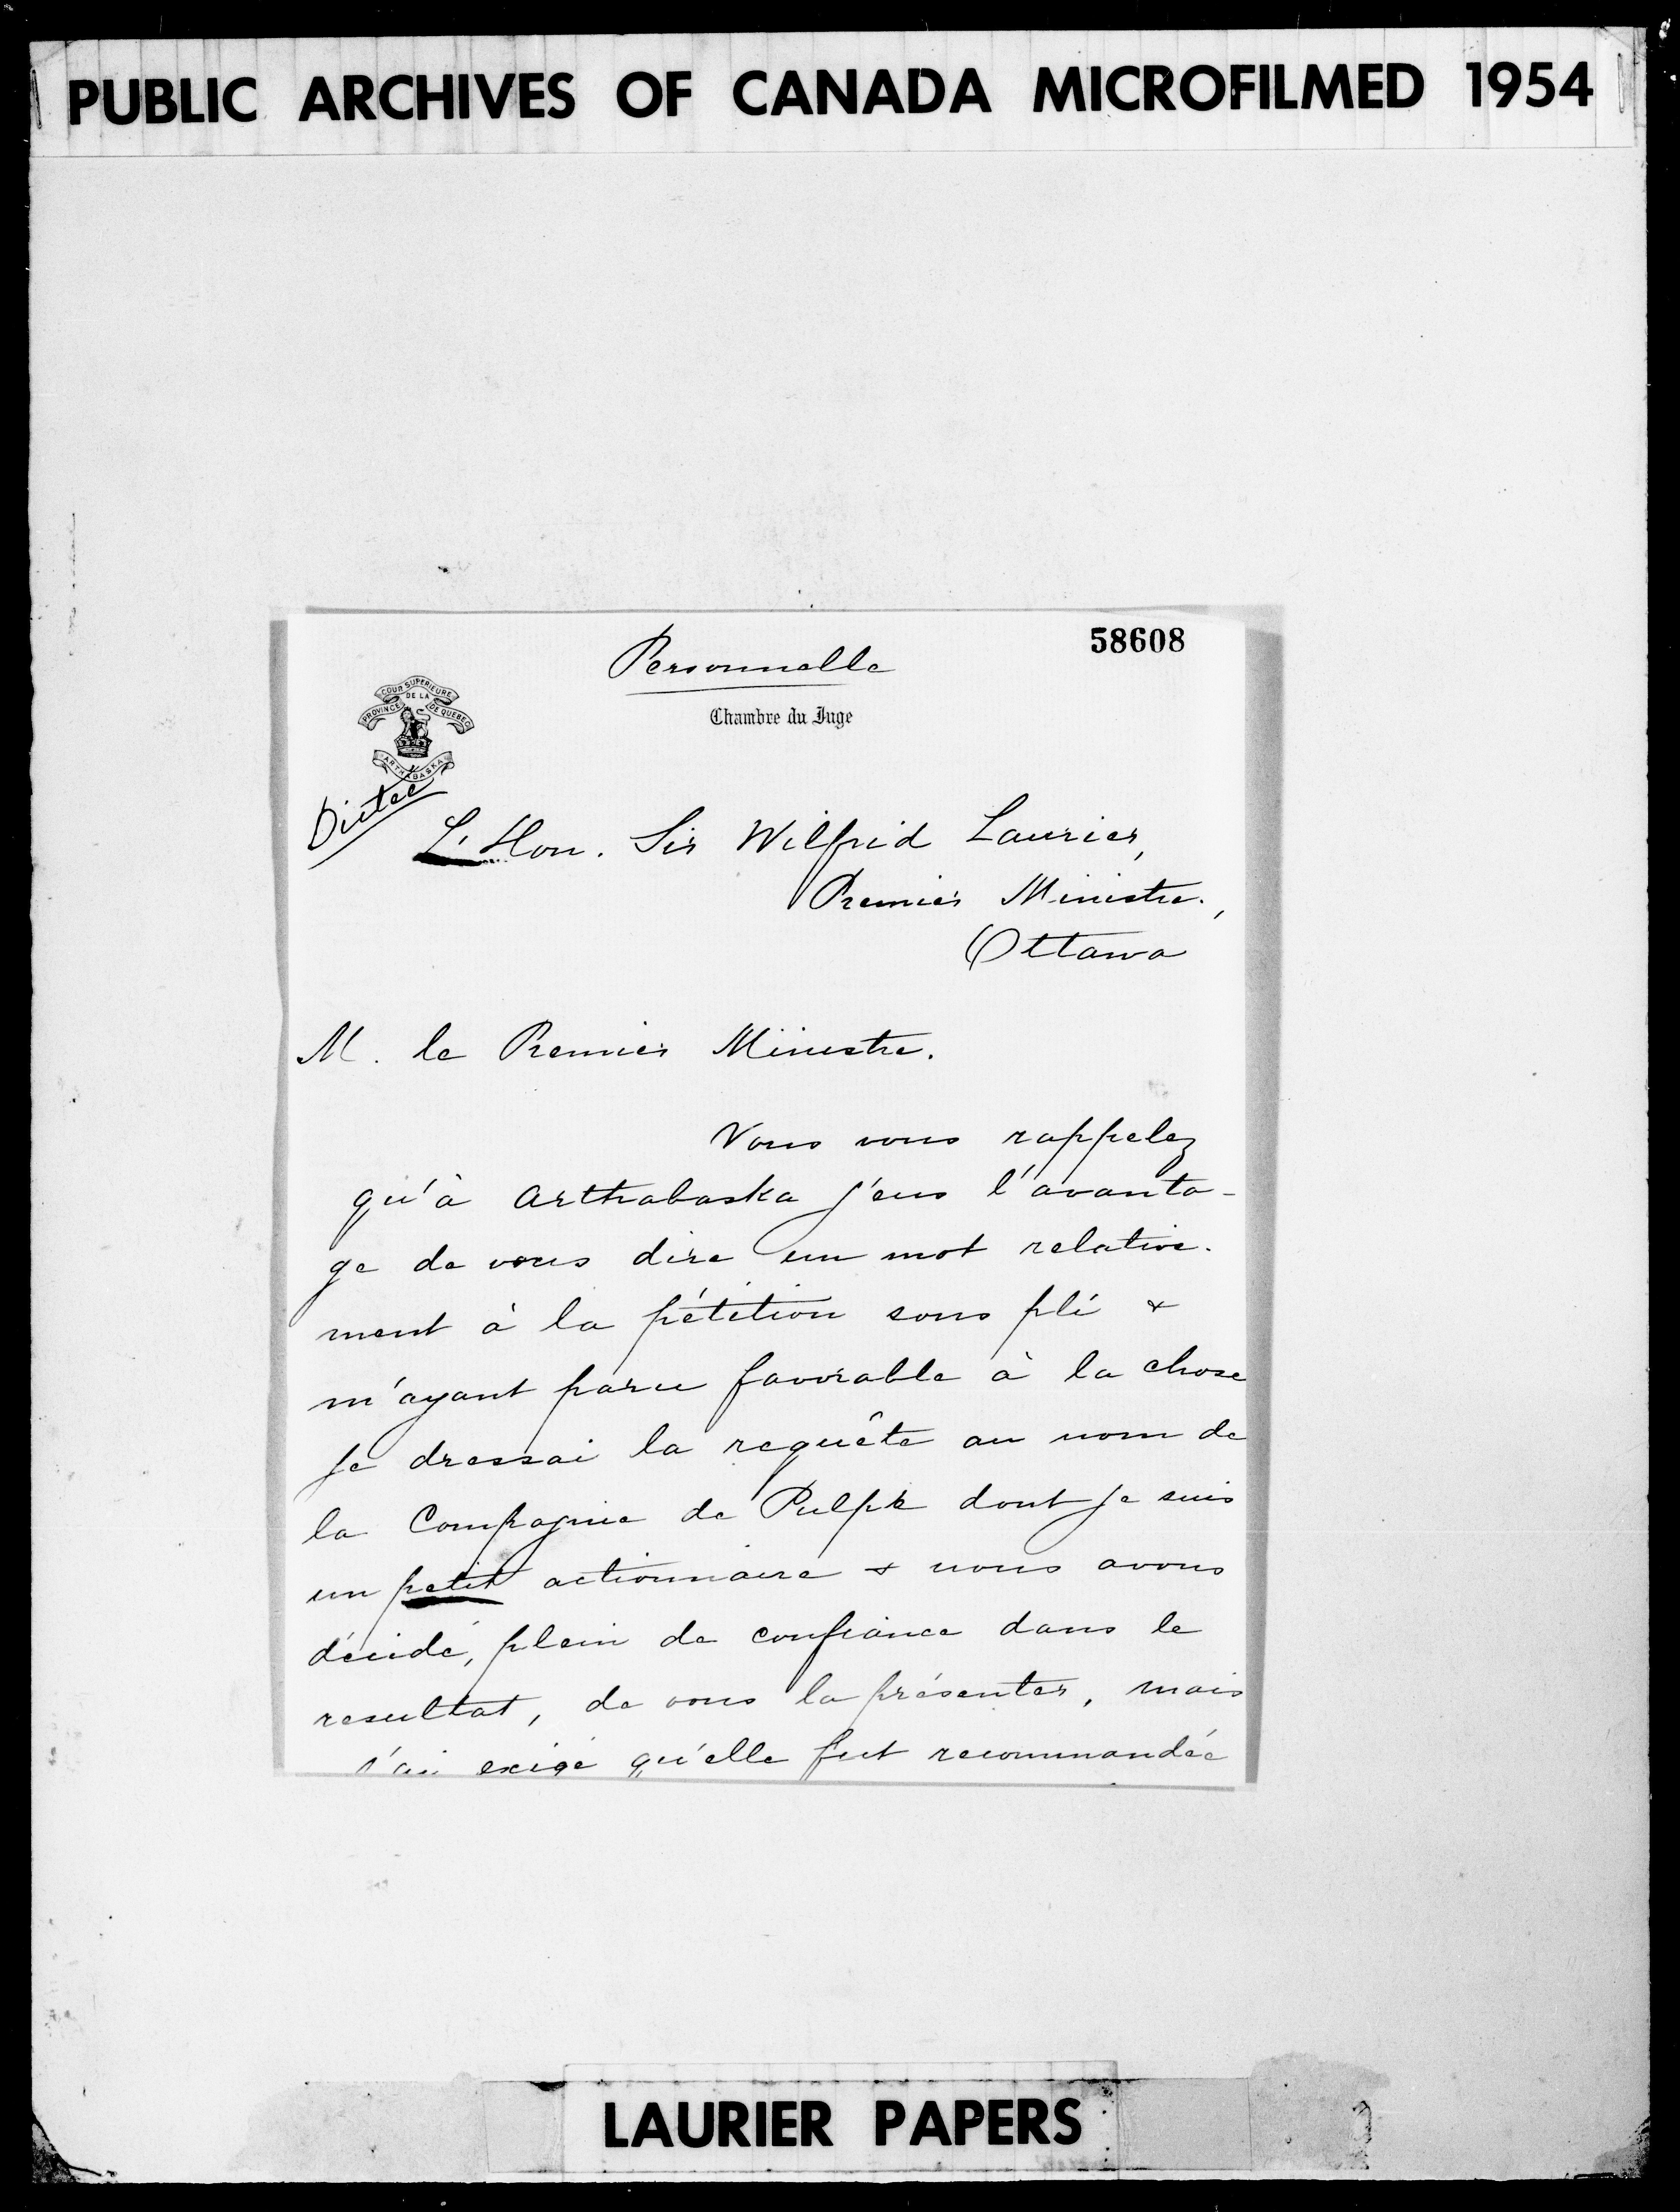 PUBLIC ARCHIVES OF CANADA MICROFILMED 1954
58608
Personnelle
COUR SUPERIEURE
DE LA
PROVINCE DE QUEBEC
ARTHABASKA
Chambre du Juge
Dictée
L'Hon. Sir Wilfrid Laurier,
Premier Ministre.,
Ottawa
M. le Premier Ministre.
Vous vous rappelez
qu'à Arthabaska j'eus l'avanta-
ge de vous dire un mot relative-
ment à la pétition sous pli &
m'ayant paru favorable à la chose
je dressai la requête au nom de
la Compagnie de Pulpe dont je suis
un petit actionnaire & nous avons
décidé, plein de confiance dans le
resultat, de vous la présenter, mais
j'ai exigé qu'elle fut recommandée
LAURIER PAPERS